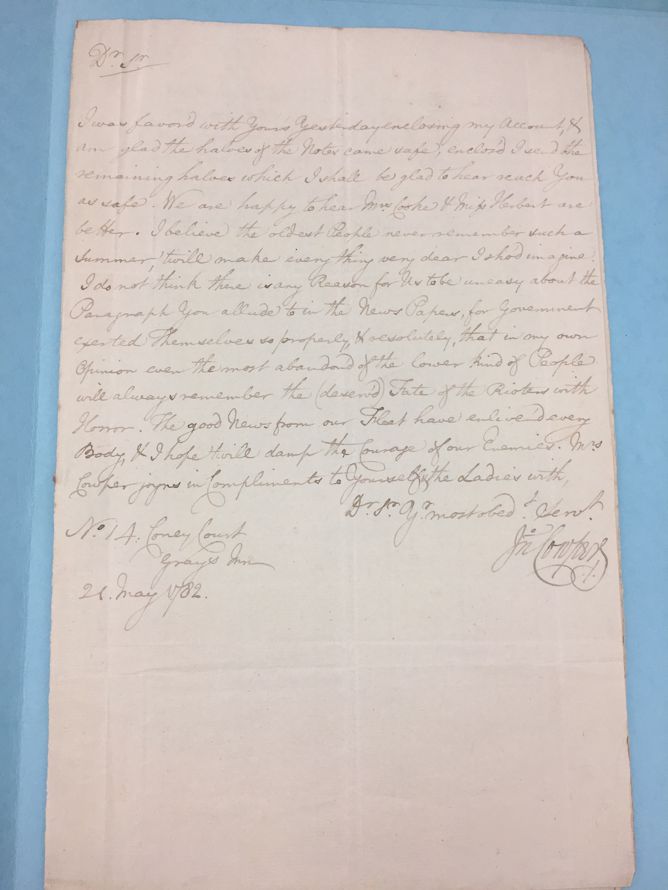 Dr. Sr.
I was favord with Yours Yesterday enclosing my Account, &
am glad the halves of the Notes came safe, enclosd I send the
remaining halves which I shall be glad to hear reach You
as safe. We are happy to hear Mrs Cooke & Miss Herbert are
better. I believe the oldest People never remember such a
Summer, 'twill make every thing very dear I shod imagine.
I do not think there is any Reason for Us to be uneasy about the
Paragraph You allude to in the News Papers, for Government
exerted Themselves so properly & resolutely, that in my own
Opinion even the most abandond of the lower kind of People
will always remember the (deservd) Fate of the Rioters with
Horror. The good News from our Fleet have enlivend every
Body, & I hope 'twill damp the Courage of our Enemies. Mrs
Cowper joyns in Compliments to Yourself & the Ladies with,
Dr. Sr. Yr. most obedt. Servt.
Jno. Cowper
No. 14. Coney Court
Grays Inn
21. May 1782.